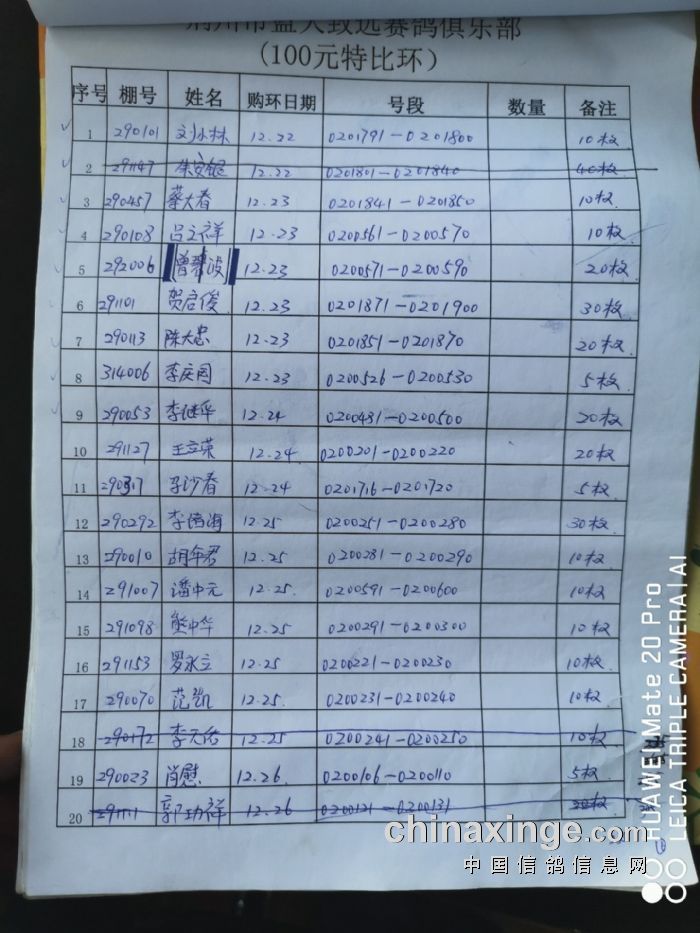 荆州市盛大致远赛鸽俱乐部
(100元特比环)
序号 棚号 姓名 购环日期 号段 数量 备注
1 290101 刘小林 12.22 0201791-0201800 10枚
2 291147 朱安银 12.22 0201801-0201840 40枚
3 290457 蔡大春 12.23 0201841-0201850 10枚
4 290108 吕立祥 12.23 0200561-0200570 10枚
5 292006 曾 波 12.23 0200571-0200590 20枚
6 291101 贺启俊 12.23 0201871-0201900 30枚
7 290113 陈大忠 12.23 0201851-0201870 20枚
8 314006 李庆国 12.23 0200526-0200530 5枚
9 290053 李继华 12.24 0200481-0200500 20枚
10 291127 王立荣 12.24 0200201-0200220 20枚
11 290317 12.24 0201716-0201720 5枚
12 290292 李 海 12.25 0200251-0200280 30枚
13 290010 胡年君 12.25 0200281-0200290 10枚
14 291007 潘中元 12.25 0200591-0200600 10枚
15 291098 熊中华 12.25 0200291-0200300 10枚
16 291153 罗永立 12.25 0200221-0200230 10枚
17 290070 范凯 12.25 0200231-0200240 10枚
18 290172 李天佑 12.25 0200241-0200250 10枚
19 290023 肖慰 12.26 0200106-0200110 5枚
20 291111 郭功祥 12.26 0200121-0200131
chinaxinge.com
中国信鸽信息网
HUAWEI Mate 20 Pro
LEICA TRIPLE CAMERA | AI